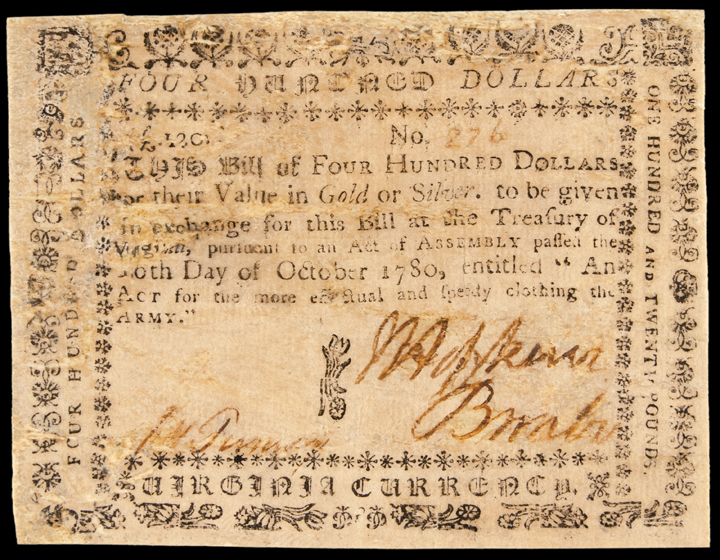 FOUR HUNDRED DOLLARS
£.120. No. 276
THIS Bill of FOUR HUNDRED DOLLARS
or their Value in Gold or Silver. to be given
in exchange for this Bill at the Treasury of
Virginia, pursuant to an Act of ASSEMBLY passed the
Day of October 1780, entitled “ An
ACT for the more effectual and speedy clothing the
ARMY.”
J Hopkins
VIRGINIA CURRENCY.
FOUR HUNDRED DOLLARS
ONE HUNDRED AND TWENTY POUNDS.